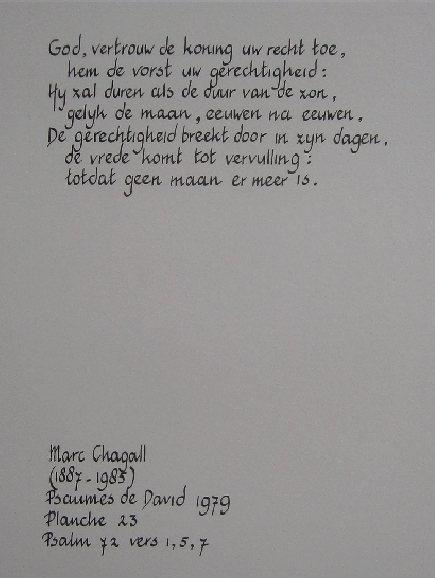 God, vertrouw de koning uw recht toe,
hem de vorst uw gerechtigheid:
Hy zal duren als de duur van de zon,
gelyk de maan, eeuwen na eeuwen.
De gerechtigheid breekt door in zyn dagen,
de vrede komt tot vervulling:
totdat geen maan er meer is.
Marc Chagall
(1887-1985)
Psaumes de David 1979
Planche 23
Psalm 72 vers 1,5,7